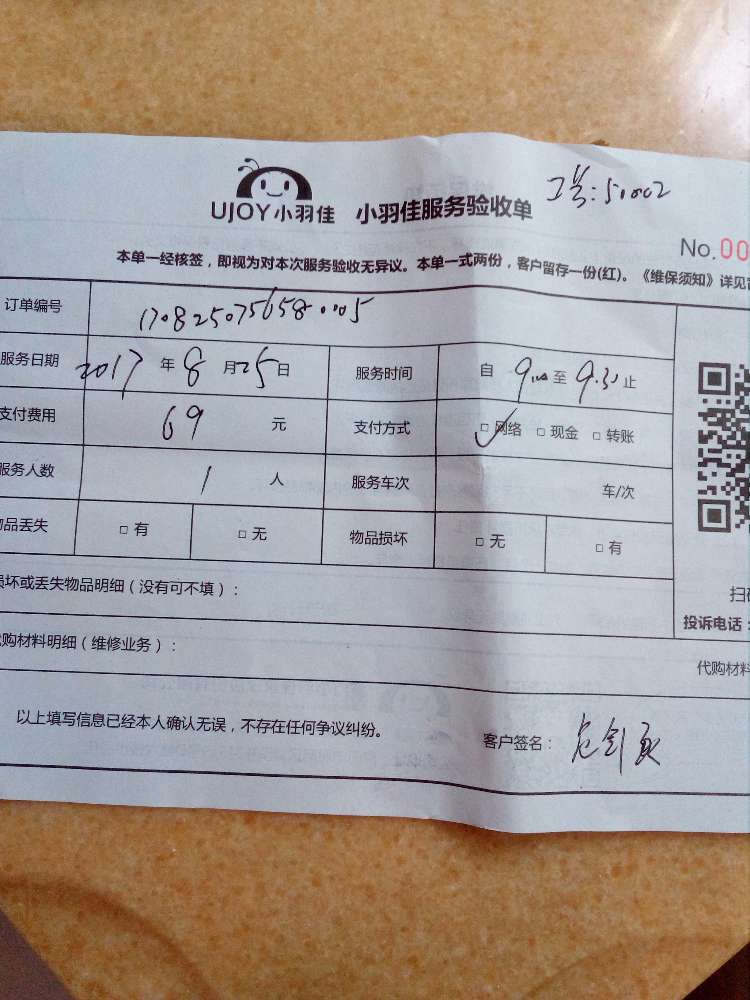 工号:51002
UJOY小羽佳 小羽佳服务验收单
No.00
本单一经核签，即视为对本次服务验收无异议。本单一式两份，客户留存一份(红)。《维保须知》详见
订单编号
服务日期 2017 年 8 月 25 日 服务时间 自 9:00 至 9:30 止
支付费用 69 元 支付方式 □网络 □现金 □转账
服务人数 1 人 服务车次 车/次
物品丢失 □有 □无 物品损坏 □无 □有
损坏或丢失物品明细（没有可不填）：
扫
投诉电话：
代购材料明细（维修业务）：
代购材料
以上填写信息已经本人确认无误，不存在任何争议纠纷。
客户签名：